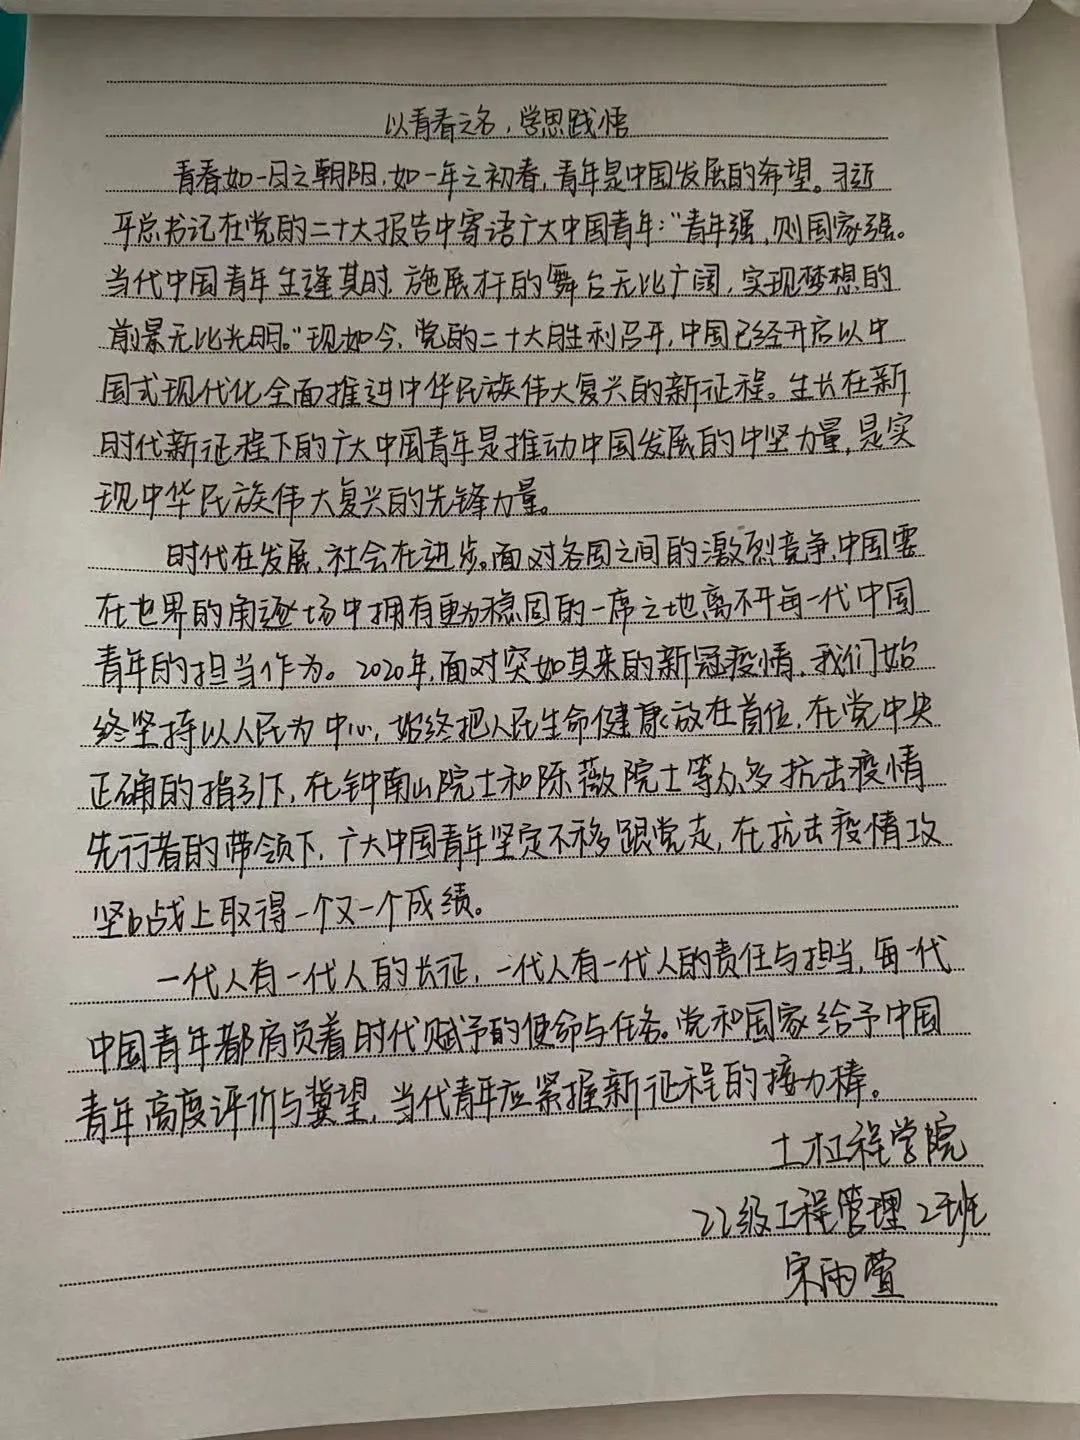 以青春之名，学思践悟
青春如一日之朝阳，如一年之初春，青年是中国发展的希望。习近
平总书记在党的二十大报告中寄语广大中国青年："青年强，则国家强。
当代中国青年生逢其时，施展才的舞台无比广阔，实现梦想的
前景无比光明。"现如今，党的二十大胜利召开，中国已经开启以中
国式现代化全面推进中华民族伟大复兴的新征程。生长在新
时代新征程下的广大中国青年是推动中国发展的中坚力量，是实
现中华民族伟大复兴的先锋力量。
时代在发展，社会在进步。面对各国之间的激烈竞争，中国要
在世界的角逐场中拥有更为稳固的一席之地离不开每一代中国
青年的担当作为。2020年，面对突如其来的新冠疫情，我们始
终坚持以人民为中心，始终把人民生命健康放在首位，在党中央
正确的指引下，在钟南山院士和陈薇院士等众多抗击疫情
先行者的带领下，广大中国青年坚定不移跟党走，在抗击疫情攻
坚战上取得一个又一个成绩。
一代人有一代人的长征，一代人有一代人的责任与担当，每一代
中国青年都肩负着时代赋予的使命与任务。党和国家给予中国
青年高度评价与冀望，当代青年应紧握新征程的接力棒。
土木工程学院
22级工程管理2班
宋雨萱